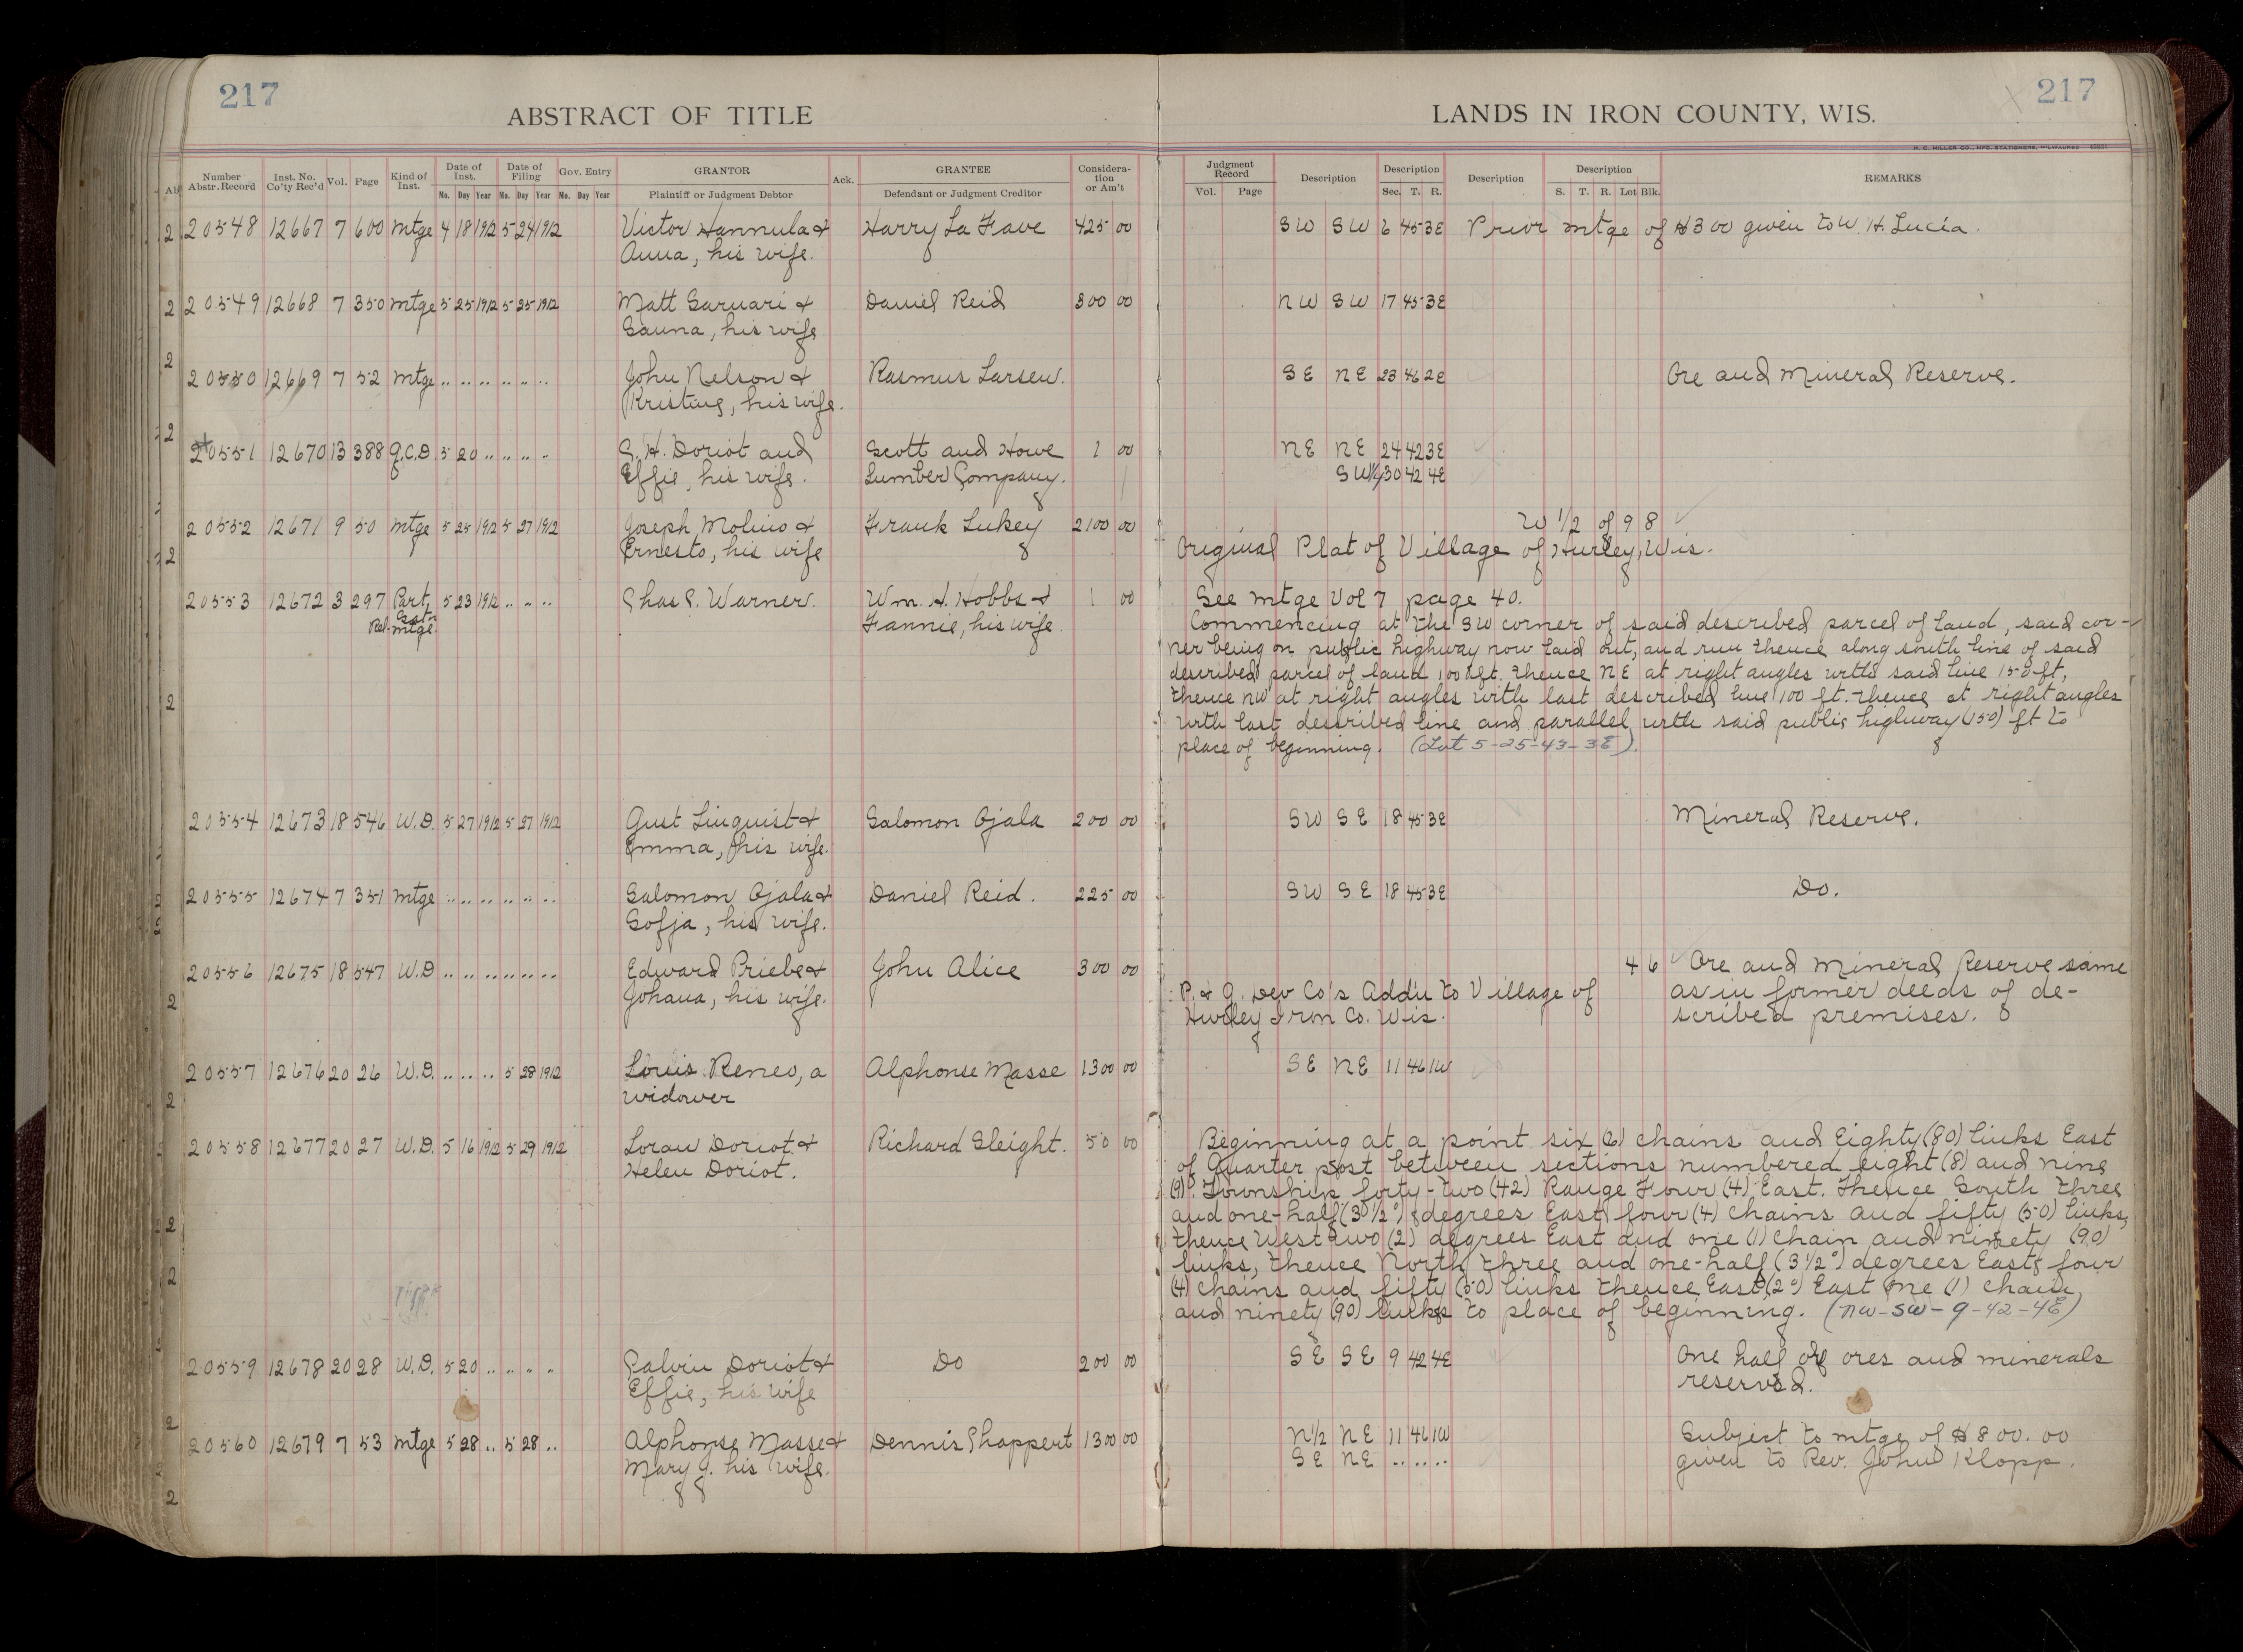 217
217
ABSTRACT OF TITLE
LANDS IN IRON COUNTY, WIS.
H. C. MILLER CO., MFG. STATIONERS, MILWAUKEE
Number Abstr. Record Inst. No. Co'ty Rec'd Vol. Page Kind of Inst. Date of Inst. Date of Filing Gov. Entry GRANTOR Ack. GRANTEE Considera-tion or Am't Judgment Record Description Description Description Description REMARKS
Mo. Day Year Mo. Day Year Mo. Day Year Plaintiff or Judgment Debtor Defendant or Judgment Creditor Vol. Page Sec. T. R. S. T. R. Lot Blk.
20548 12667 7 600 Mtge 4 18 1912 5 24 1912 Victor Hannula & Harry La Fave 425 00 SW SW 6 45 3E Prior mtge of $300 given to W. H. Lucia.
Anna, his wife.
20549 12668 7 350 Mtge 5 25 1912 5 25 1912 Matt Saruari & Daniel Reid 300 00 NW SW 17 45 3E
Sanna, his wife
20550 12669 7 52 Mtge " " " " " " John Nelson & Rasmus Larsen. SE NE 23 46 2E Ore and Mineral Reserve.
Kristine, his wife.
20551 12670 13 388 Q.C.D. 5 20 " " " " C. H. Doriot and Scott and Howe 1 00 NE NE 24 42 3E
Effie, his wife. Lumber Company. SW¼ 30 42 4E
20552 12671 9 50 Mtge 5 25 1912 5 27 1912 Joseph Molino & Frank Lukey 2100 00 W 1/2 of 9 8
Ernesto, his wife Original Plat of Village of Hurley, Wis.
20553 12672 3 297 Part. 5 23 1912 " " " Chas S. Warner. Wm. H. Hobbs & 1 00 See Mtge Vol 7 page 40.
Rel. mtge. Fannie, his wife. Commencing at the SW corner of said described parcel of land, said cor-
ner being on public highway now laid out, and run thence along south line of said
described parcel of land 100 ft. thence NE at right angles with said line 150 ft,
thence NW at right angles with last described line 100 ft. thence at right angles
with last described line and parallel with said public highway (150) ft to
place of beginning. (Lot 5-25-43-3E)
20554 12673 18 546 W.D. 5 27 1912 5 27 1912 Gust Linquist & Salomon Ojala 200 00 SW SE 18 45 3E Mineral Reserve.
Emma, his wife.
20555 12674 7 351 Mtge " " " " " " Salomon Ojala & Daniel Reid. 225 00 SW SE 18 45 3E Do.
Sofja, his wife.
20556 12675 18 547 W.D " " " " " " Edward Priebe & John Alice 300 00 4 6 Ore and Mineral Reserve same
Johana, his wife. P. & G. Dev Co's Add'n to Village of as in former deeds of de-
Hurley Iron Co. Wis. scribed premises.
20557 12676 20 26 W.D. " " " 5 28 1912 Louis Reneo, a Alphonse Masse 1300 00 SE NE 11 46 1W
widower
20558 12677 20 27 W.D. 5 16 1912 5 29 1912 Loran Doriot & Richard Sleight. 50 00 Beginning at a point six (6) chains and Eighty (80) links East
Helen Doriot. of Quarter post between sections numbered eight (8) and nine
(9). Township forty-two (42) Range Four (4) East. Thence South three
and one-half (3 1/2°) degrees East four (4) chains and fifty (50) links,
thence West two (2) degrees East and one (1) chain and ninety (90)
links, thence North three and one-half (3 1/2°) degrees East four
(4) chains and fifty (50) links thence East (2°) East one (1) chain
and ninety (90) links to place of beginning. (NW-SW-9-42-4E)
20559 12678 20 28 W.D. 5 20 " " " " Calvin Doriot & Do 200 00 SE SE 9 42 4E One half of ores and minerals
Effie, his wife reserved.
20560 12679 7 53 Mtge 5 28 " 5 28 " Alphonse Masse & Dennis Chappert 1300 00 N1/2 NE 11 46 1W Subject to mtge of $800.00
Mary J. his wife. SE NE " " " given to Rev. John Klopp.